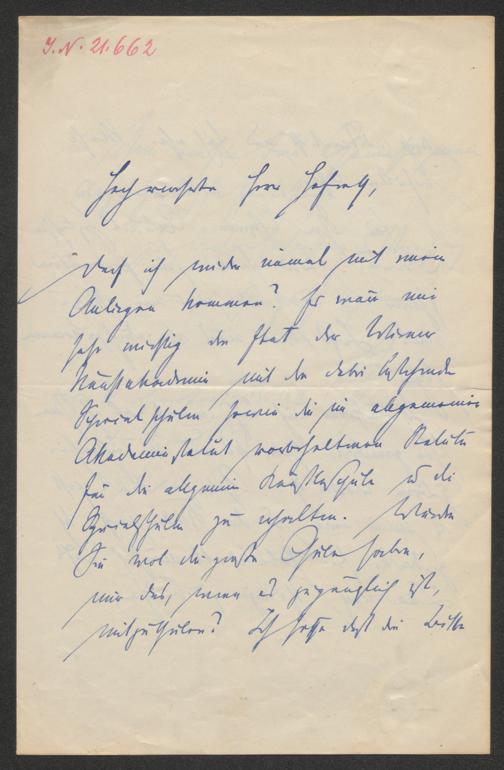 J.N. 21.662
Hochverehrter Herr Hofrath,
Darf ich wieder einmal mit einem
Anliegen kommen? Es wäre mir
sehr wichtig den Etat der Wiener
Kunstakademie mit den dabei bestehenden
Specialschulen sowie die im allgemeinen
Akademiestatut vorbehaltenen Statute
für die allgemeine Künstlerschule u die
Specialschulen zu erhalten. Würden
Sie wol die große Güte haben,
mir das, wenn es zugänglich ist,
mitzutheilen? Ich hoffe daß die Bitte